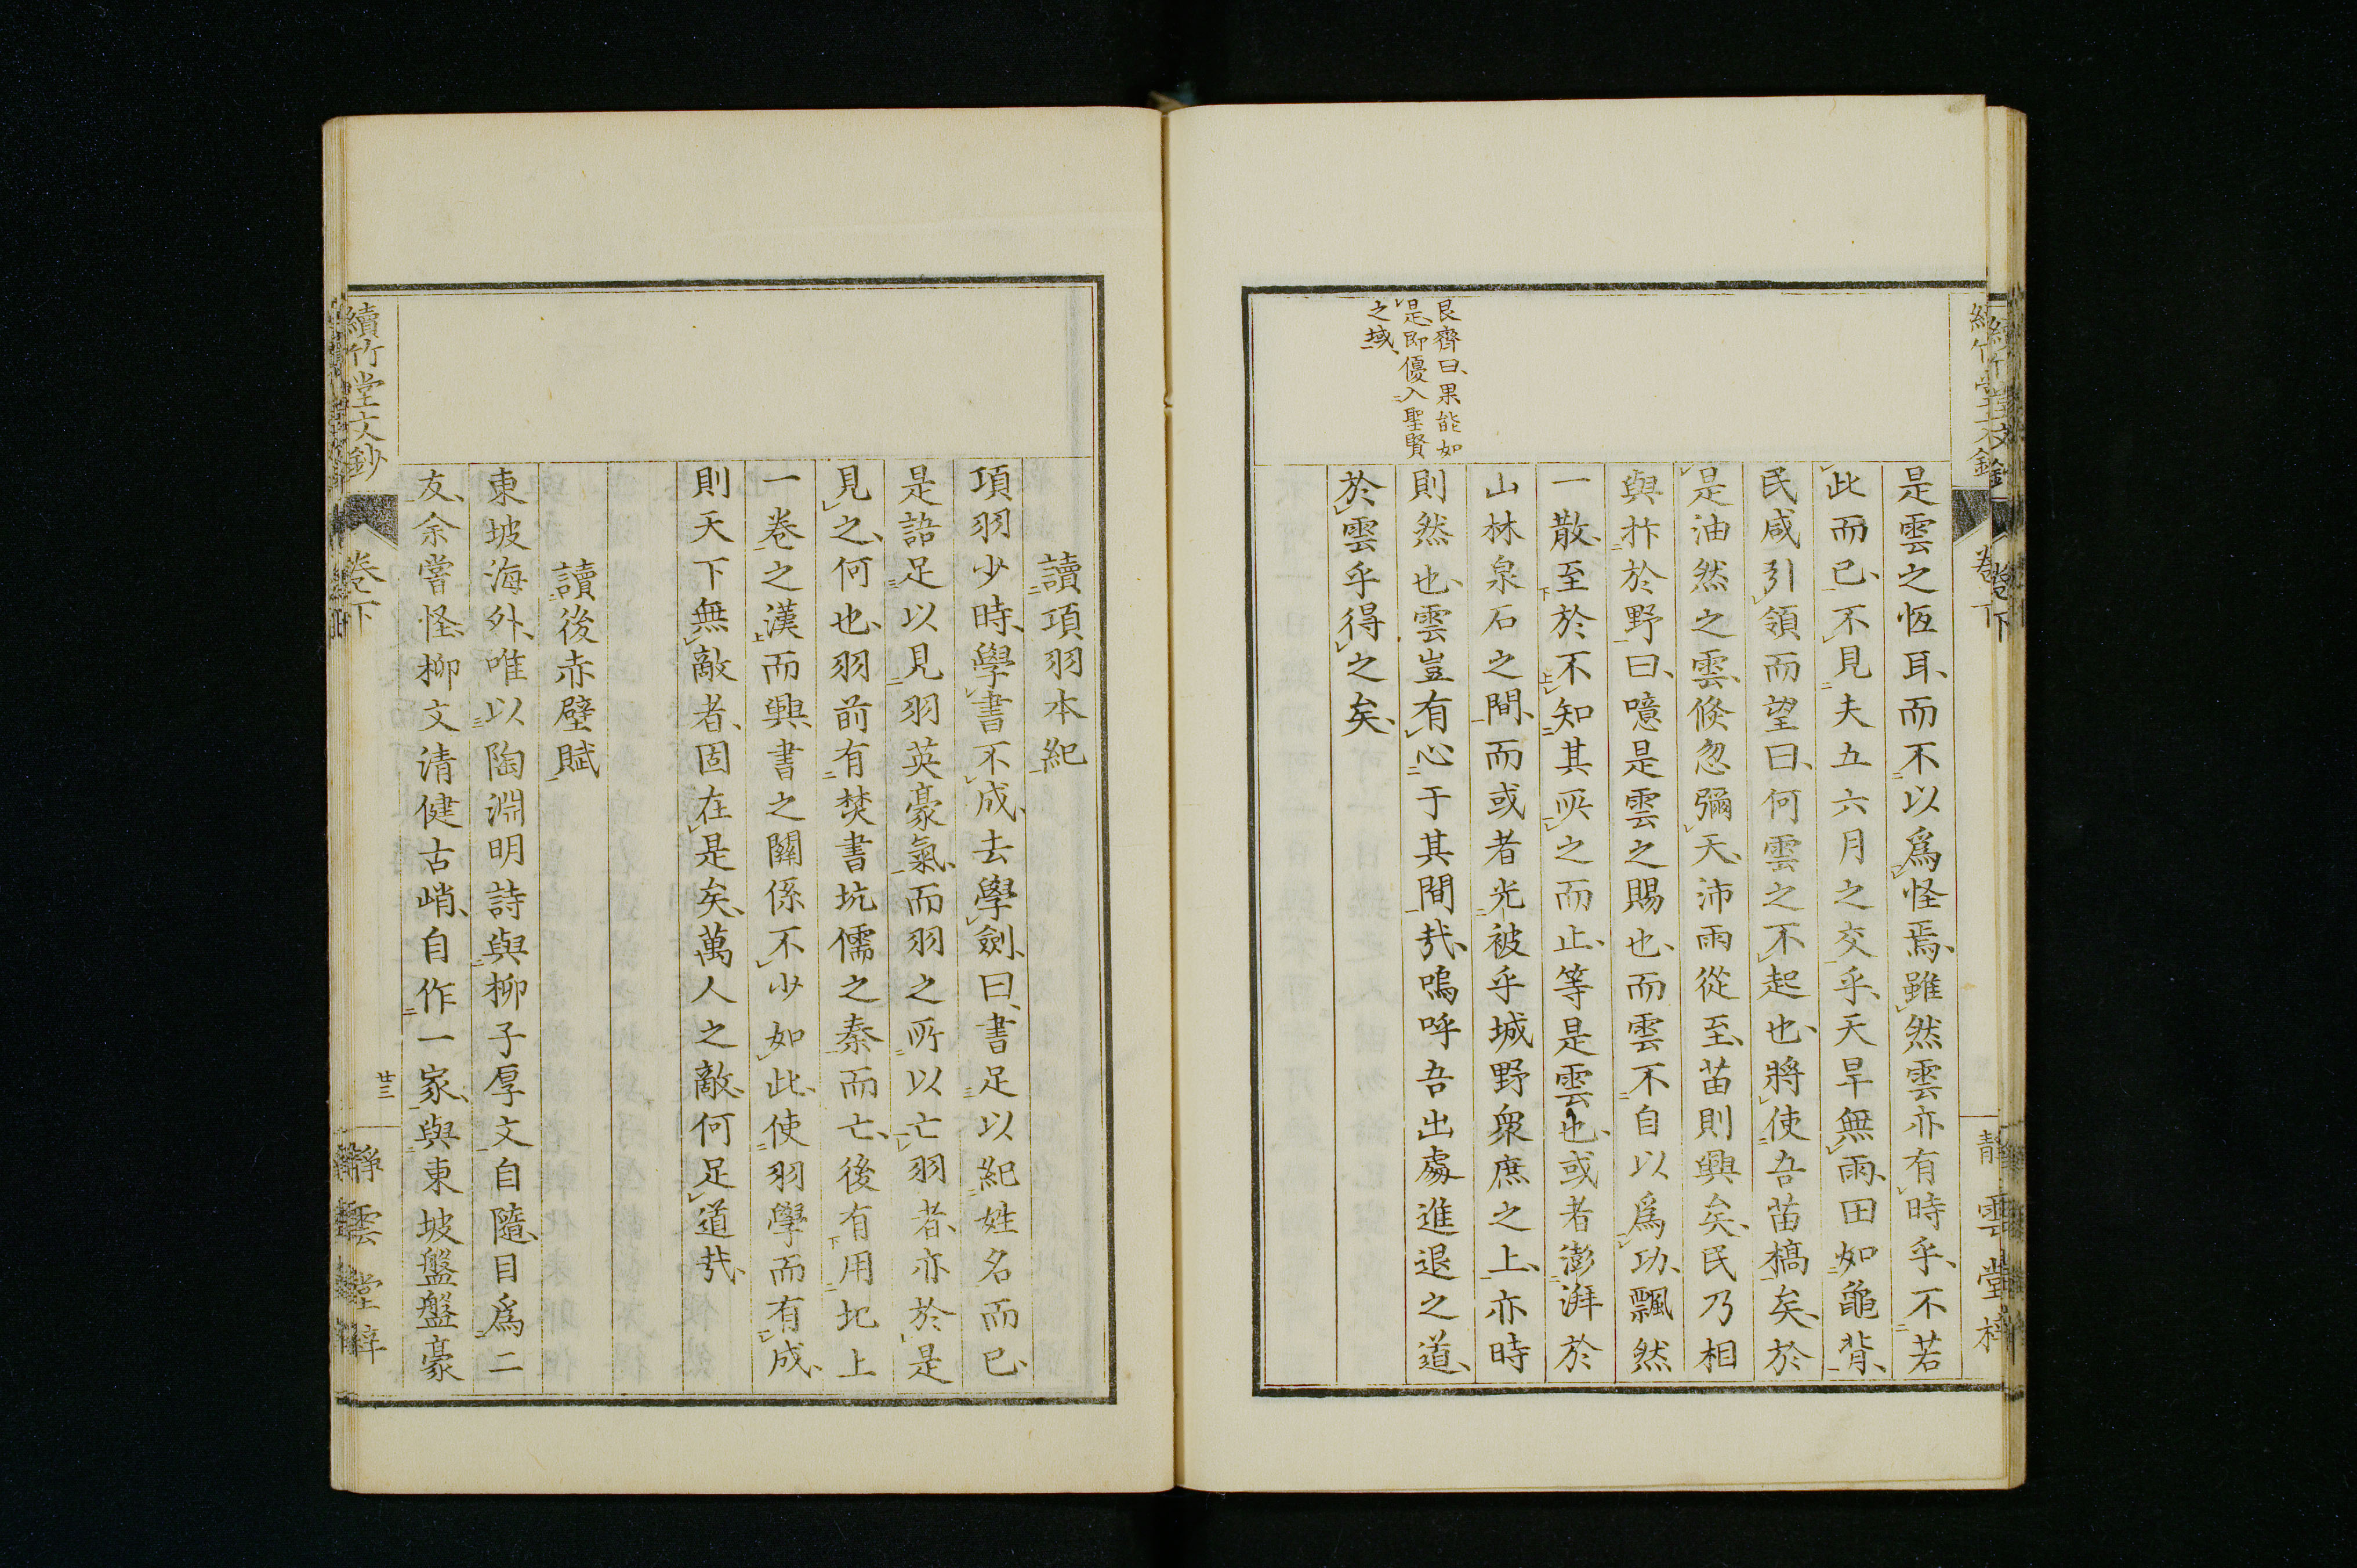 艮齊曰、果能如
是、即優入聖賢
之域、
是雲之恆耳、而不以爲怪焉、雖然雲亦有時乎、不若
此而已、不見夫五六月之交乎、天旱無雨、田如龜背、
民咸引領而望曰、何雲之不起也、將使吾苗槁矣、於
是油然之雲、倏忽彌天、沛雨從至、苗則興矣、民乃相
與抃於野曰、噫是雲之賜也、而雲不自以爲功、飄然
一散、至於不知其所之而止、等是雲也、或者澎湃於
山林泉石之間、而或者光被乎城野衆庶之上、亦時
則然也、雲豈有心于其間哉、嗚呼吾出處進退之道、
於雲乎得之矣、
靜雲堂梓
讀項羽本紀
項羽少時、學書不成、去學劍、曰、書足以紀姓名而已、
是語足以見羽英豪氣、而羽之所以亡羽者、亦於是
見之、何也、羽前有焚書坑儒之秦而亡、後有用圯上
一卷之漢而興、書之關係不少如此、使羽學而有成、
則天下無敵者、固在是矣、萬人之敵、何足道哉、
讀後赤壁賦
東坡海外、唯以陶淵明詩與柳子厚文自隨、目爲二
友、余嘗怪、柳文清健古峭、自作一家、與東坡盤盤豪
續竹堂文鈔
卷下
廿三
靜雲堂梓